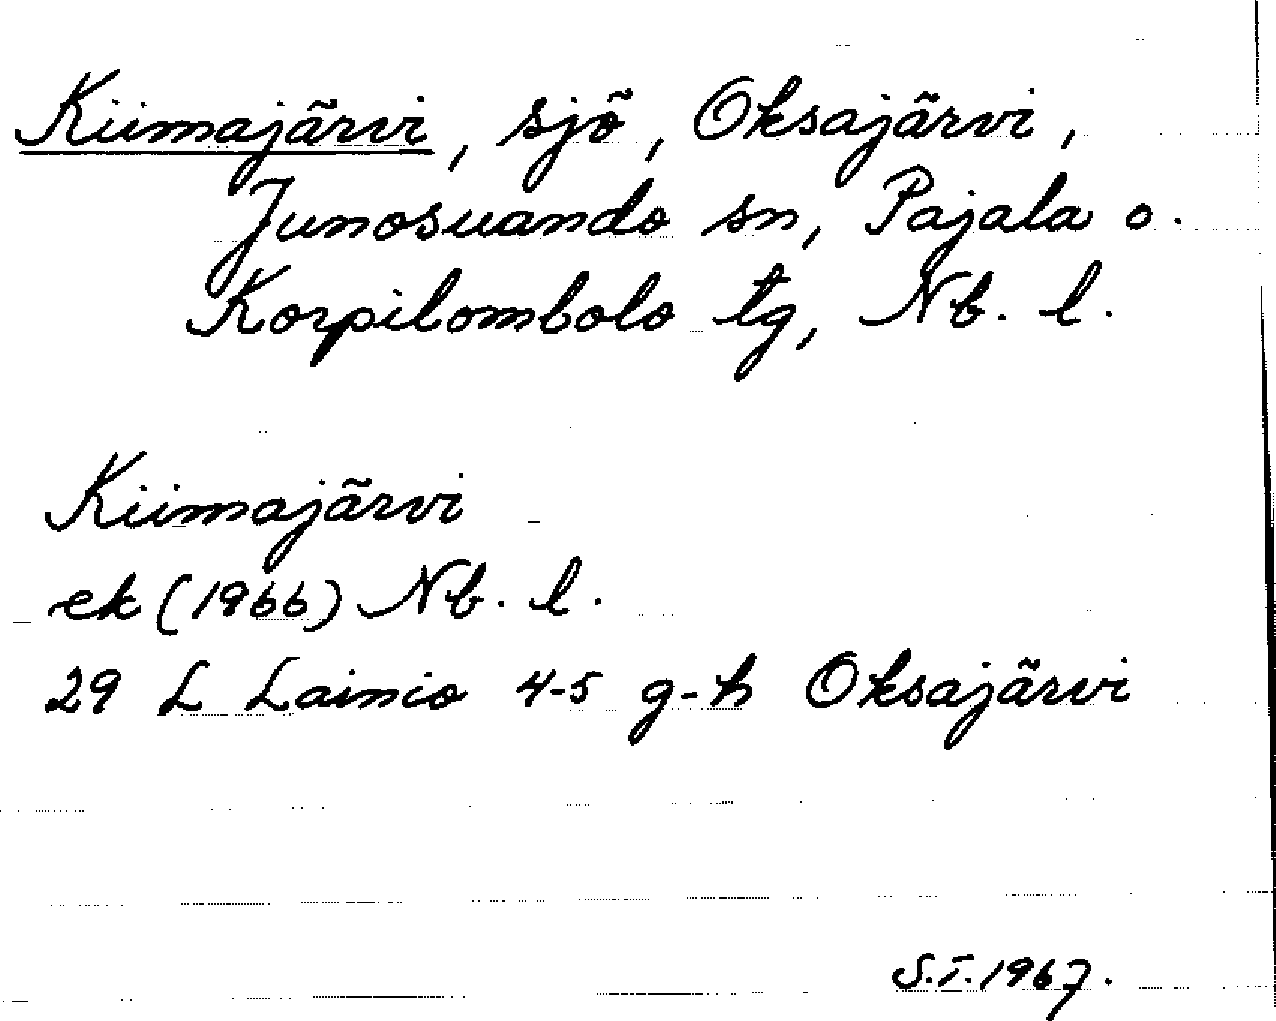 Kiimajärvi, sjö, Oksajärvi,
Junosuando sn, Pajala o.
Korpilombolo tg, Nb. l.
Kiimajärvi
ek (1966) Nb. l.
29 L Lainio 4-5 g-h Oksajärvi
S.T. 1967.